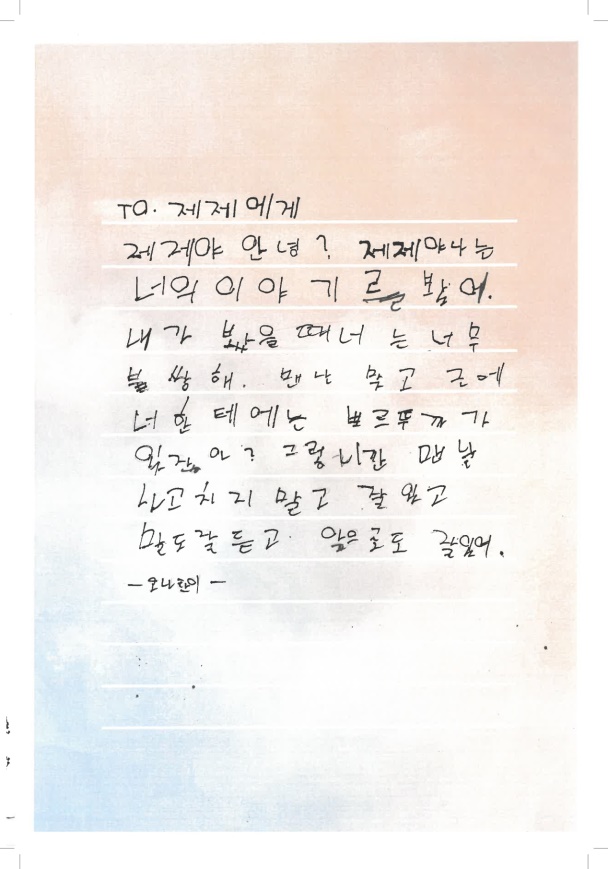 TO. 제제에게
제제야 안녕? 제제야나는
너의 이야기를 봤어.
내가 봤을때너는 너무
불쌍해. 맨난 맞고 근에
너한테에는 뽀르뚜까가
있잔아? 그렇지만 맨날
사고치지 말고 잘 있고
말도잘듣고 앞으로도 잘있어.
- 오나란이 -